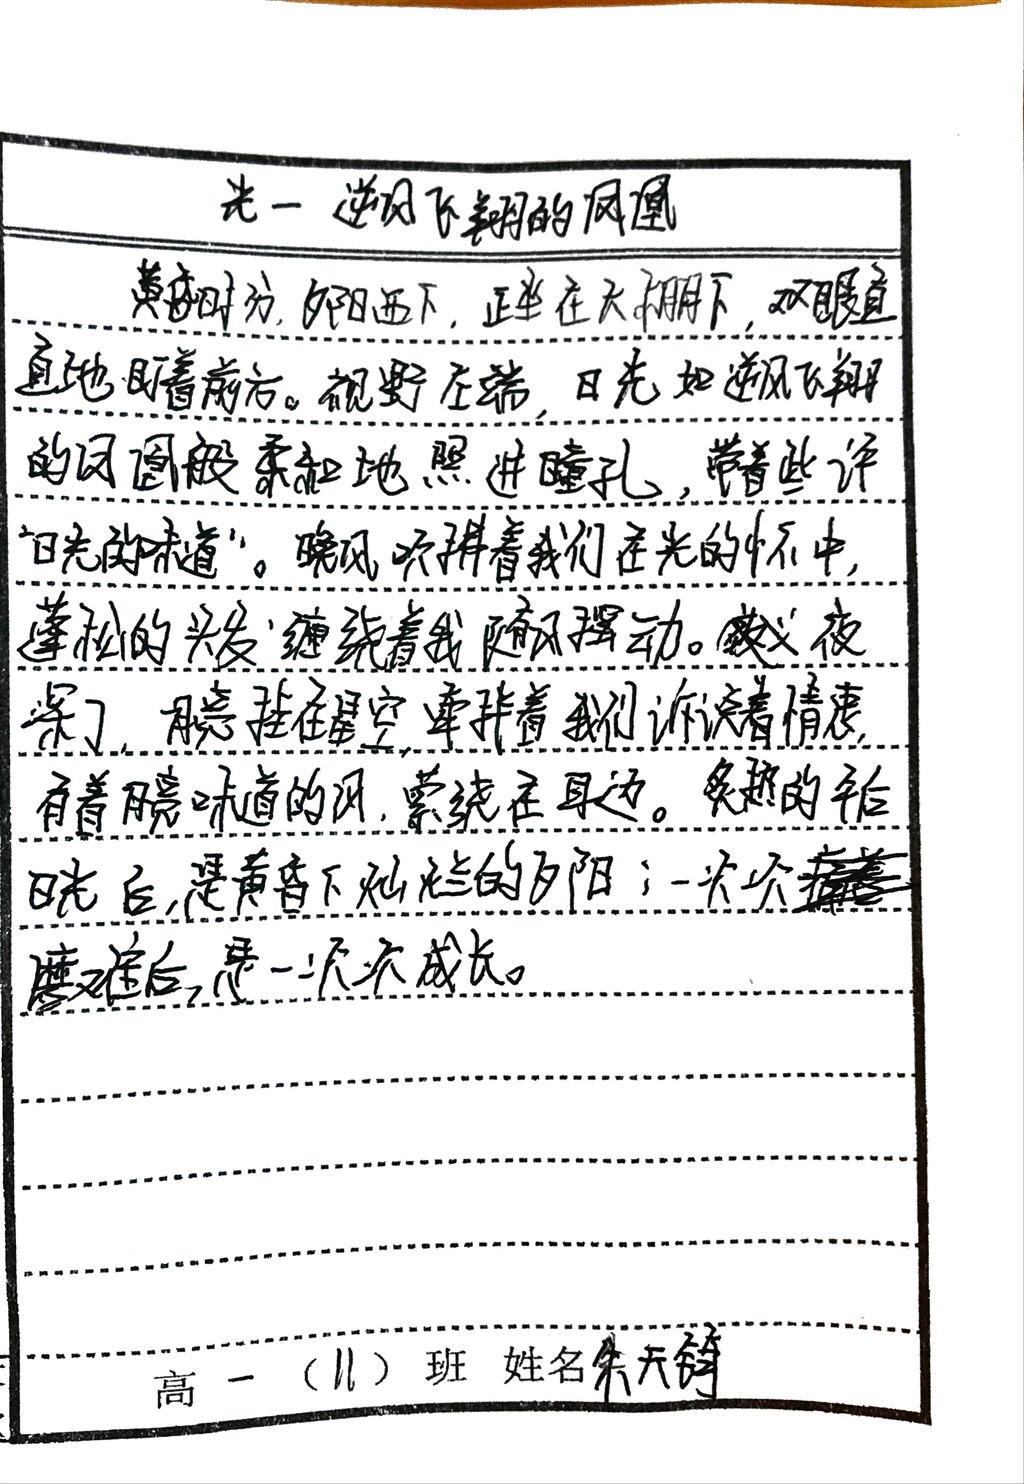 光一逆风飞翔的凤凰
黄昏时分,夕阳西下,正坐在大棚下,双眼直
直地盯着前方。视野左端,日光如逆风飞翔
的凤凰般柔和地照进瞳孔,带着些许
"日光的味道"。晚风吹拂着我们在光的怀中,
蓬松的头发缠绕着我随风摆动。夜
深了,月亮挂在星空,牵绊着我们诉说着情意,
有着月亮味道的风,萦绕在耳边。炙热的午后
日光后,是黄昏下灿烂的夕阳;一次次
磨难后,是一次次成长。
高一(11)班 姓名朱天锜